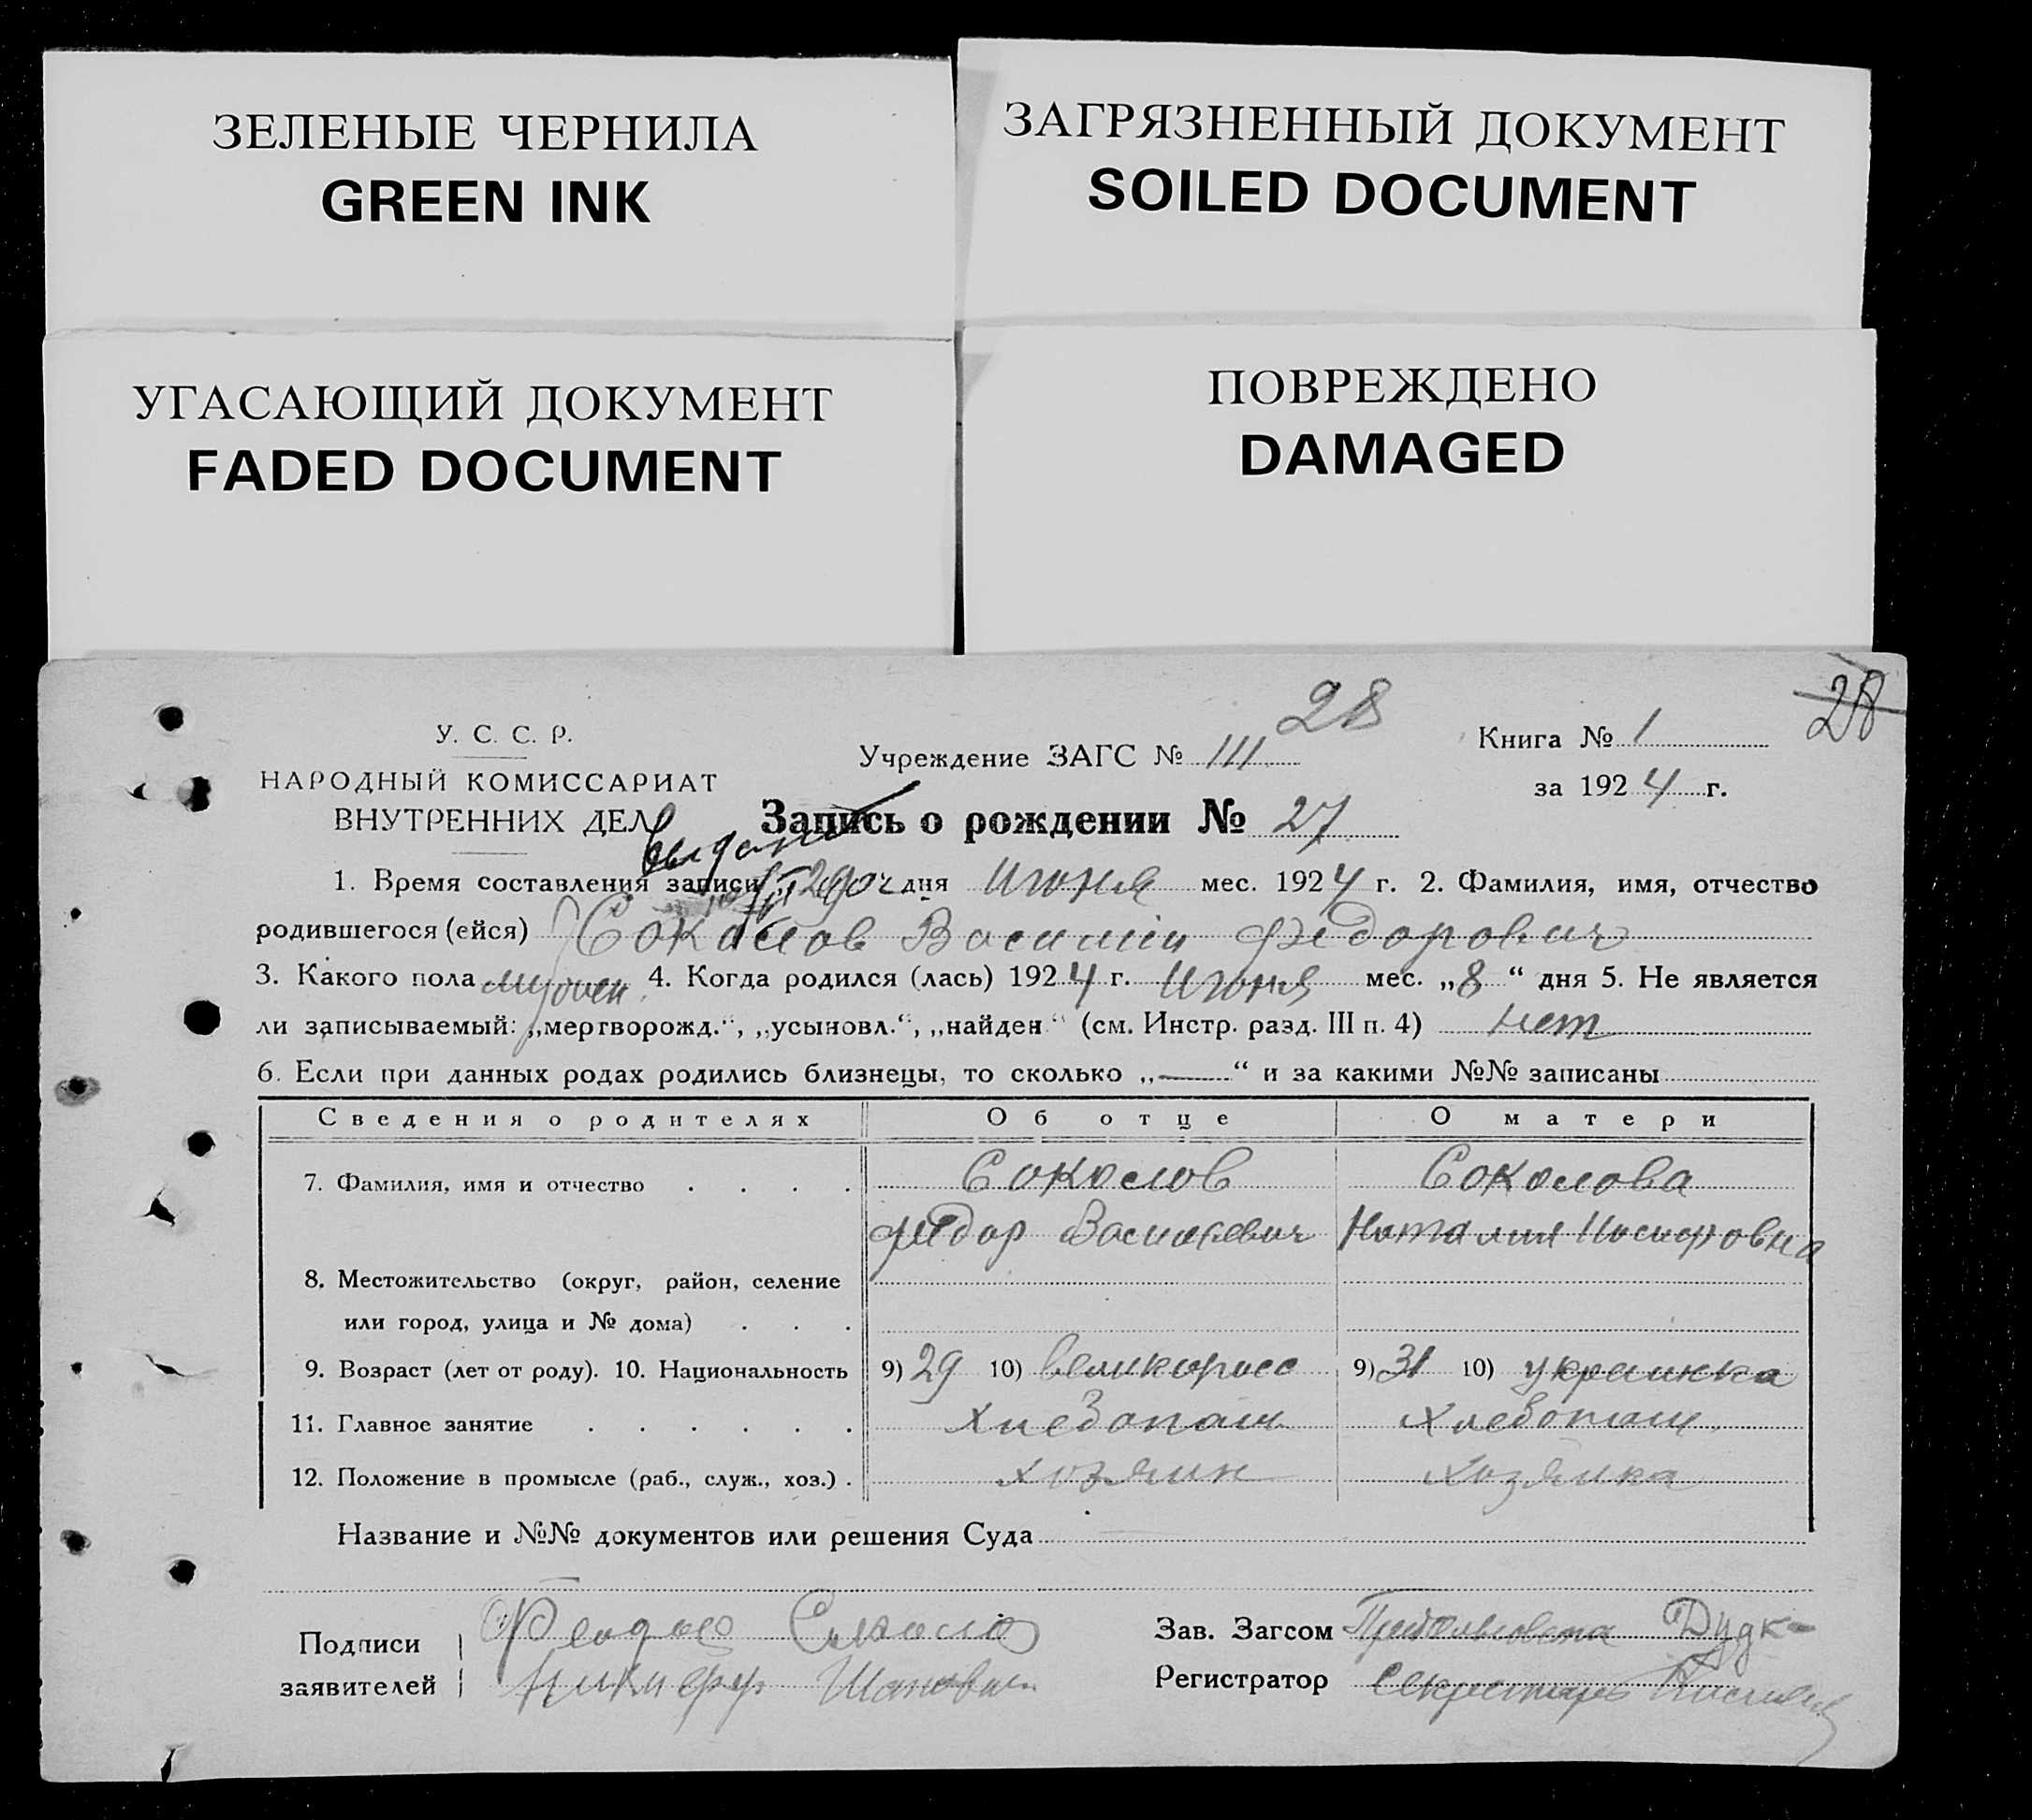 ЗЕЛЕНЫЕ ЧЕРНИЛА
GREEN INK
ЗАГРЯЗНЕННЫЙ ДОКУМЕНТ
SOILED DOCUMENT
УГАСАЮЩИЙ ДОКУМЕНТ
FADED DOCUMENT
ПОВРЕЖДЕНО
DAMAGED
28
28
У. С. С. Р.
НАРОДНЫЙ КОМИССАРИАТ
ВНУТРЕННИХ ДЕЛ
Учреждение ЗАГС № III
Книга № 1
за 1924 г.
Запись о рождении № 27
1. Время составления записи дня Июня мес. 1924 г. 2. Фамилия, имя, отчество
родившегося (ейся) Соколов Василий Федорович
3. Какого пола 4. Когда родился (лась) 1924 г. Июня мес. „8“ дня 5. Не является
ли записываемый: „мертворожд.“, „усыновл.“, „найден“ (см. Инстр. разд. III п. 4) нет
6. Если при данных родах родились близнецы, то сколько „—“ и за какими №№ записаны
Сведения о родителях Об отце О матери
7. Фамилия, имя и отчество Соколов Соколова
Федор Васильевич Наталия Иосифовна
8. Местожительство (округ, район, селение
или город, улица и № дома)
9. Возраст (лет от роду). 10. Национальность 9) 29 10) великоросс 9) 31 10) украинка
11. Главное занятие Хлебопаш Хлебопаш
12. Положение в промысле (раб., служ., хоз.) хозяин хозяйка
Название и №№ документов или решения Суда
Подписи
заявителей
Никифор
Зав. Загсом Дудк
Регистратор Секретарь